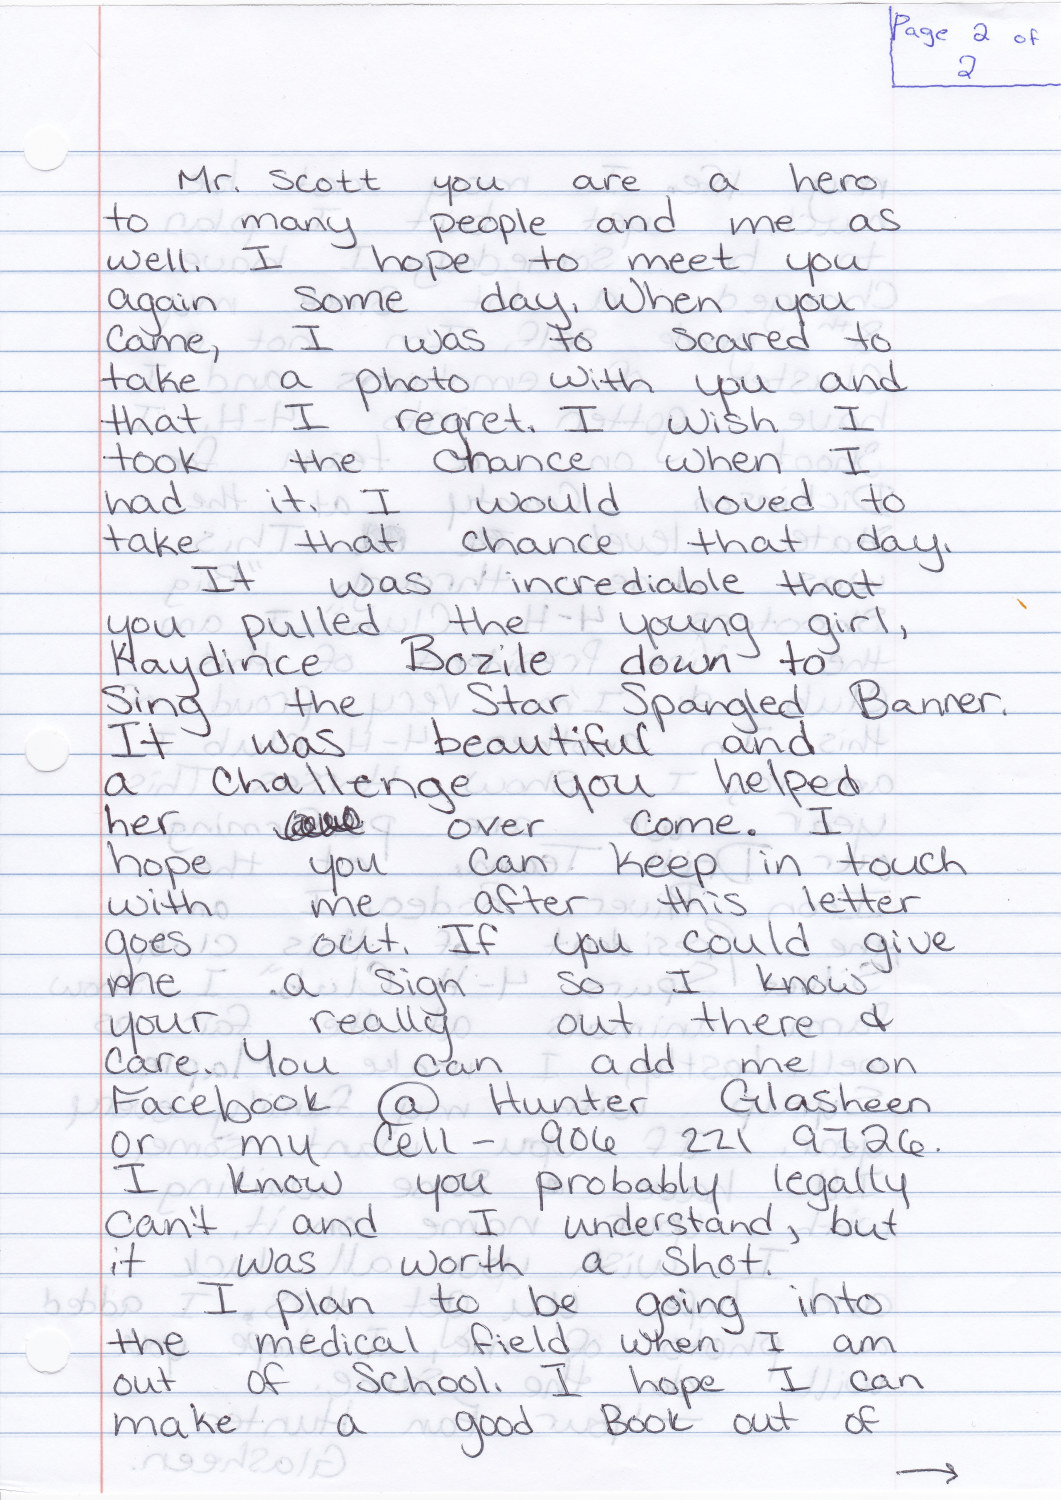 Page 2 of
2
Mr. Scott you are a hero
to many people and me as
well. I hope to meet you
again some day. When you
came, I was to scared to
take a photo with you and
that I regret. I wish I
took the chance when I
had it. I would loved to
take that chance that day.
It was incrediable that
you pulled the young girl,
Kaydince Bozile down to
Sing the Star Spangled Banner.
It was beautiful and
a challenge you helped
her over come. I
hope you can keep in touch
with me after this letter
goes out. If you could give
me a sign so I know
your really out there &
care. You can add me on
Facebook @ Hunter Glasheen
or my Cell - 906 221 9726.
I know you probably legally
can't and I understand, but
it was worth a shot.
I plan to be going into
the medical field when I am
out of School. I hope I can
make a good Book out of
→